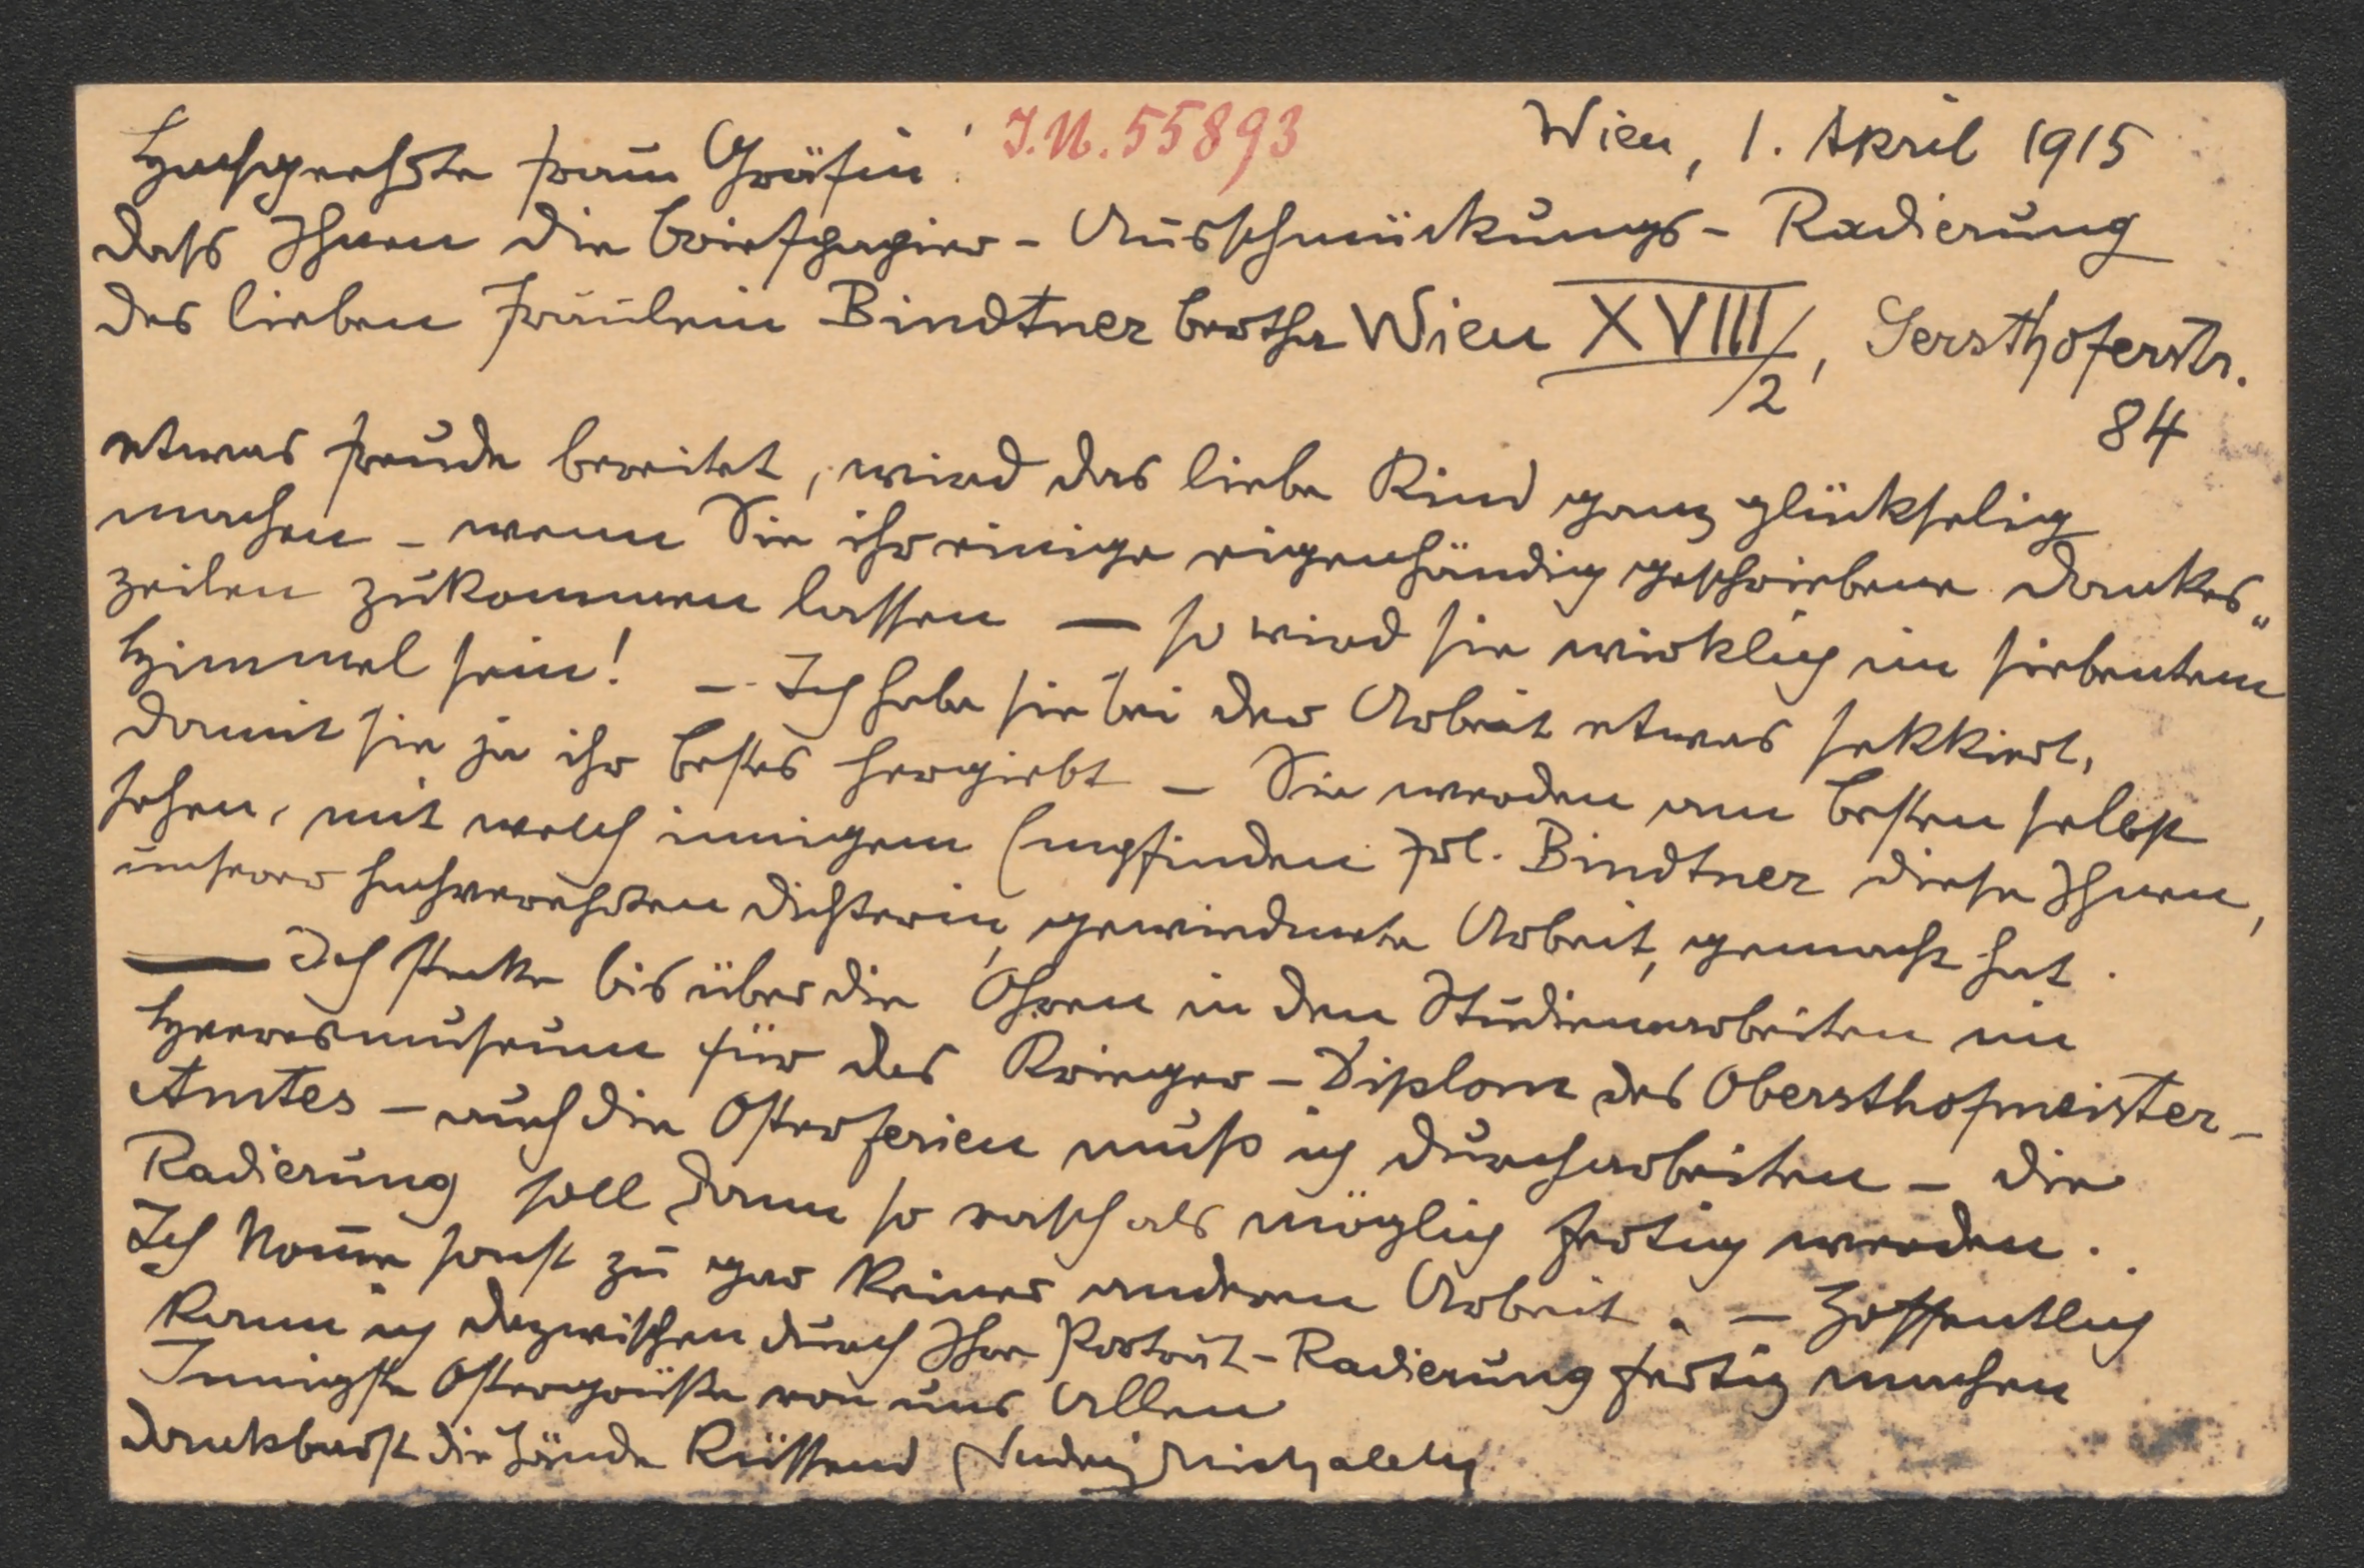 Hochgeehrte Frau Gräfin! J.N. 55893 Wien, 1. April 1915
Dass Ihnen die Briefpapier-Ausschmückungs-Radierung
des lieben Fräulein Bindtner Bertha Wien XVIII/2, Gersthoferstr.
84
etwas Freude bereitet, wird das liebe Kind ganz glückselig
machen – wenn Sie ihr einige eigenhändig geschriebene Dankes„
zeilen zukommen lassen — so wird sie wirklich im siebentem
Himmel sein! – Ich habe sie bei der Arbeit etwas sekkiert,
damit sie ja ihr bestes hergiebt – Sie werden am besten selbst
sehen, mit welch innigem Empfinden Frl. Bindtner diese Ihnen,
unserer hochverehrten Dichterin, gewiedmete Arbeit, gemacht hat.
— Ich stecke bis über die Ohren in den Studienarbeiten im
Heeresmuseum für das Krieger-Diplom des Obersthofmeister-
Amtes – auch die Osterferien muß ich durcharbeiten – die
Radierung soll dann so rasch als möglich fertig werden.
Ich komme sonst zu gar keiner anderen Arbeit. – Hoffentlich
kann ich dazwischen durch Ihre Porträt-Radierung fertig machen
Innigste Ostergrüße von uns Allen
dankbarst die Hände küssend Ludwig Michalek